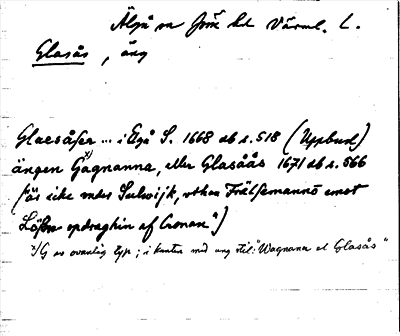 Älgå sn Jösse hd Värml. L.
Glasås, äng
Glaesåser ... i Elgå S. 1668 db s. 518 (Uppbud)
ängen Gagnanna, eller Glasåås 1671 db s. 566
(är icke under Sulwijk, uthan Frälsemanns emot
Lössn opdraghin af Cronan")
x)G av ovanlig typ; i kanten med ung stil: "Wagnana el Glasås"